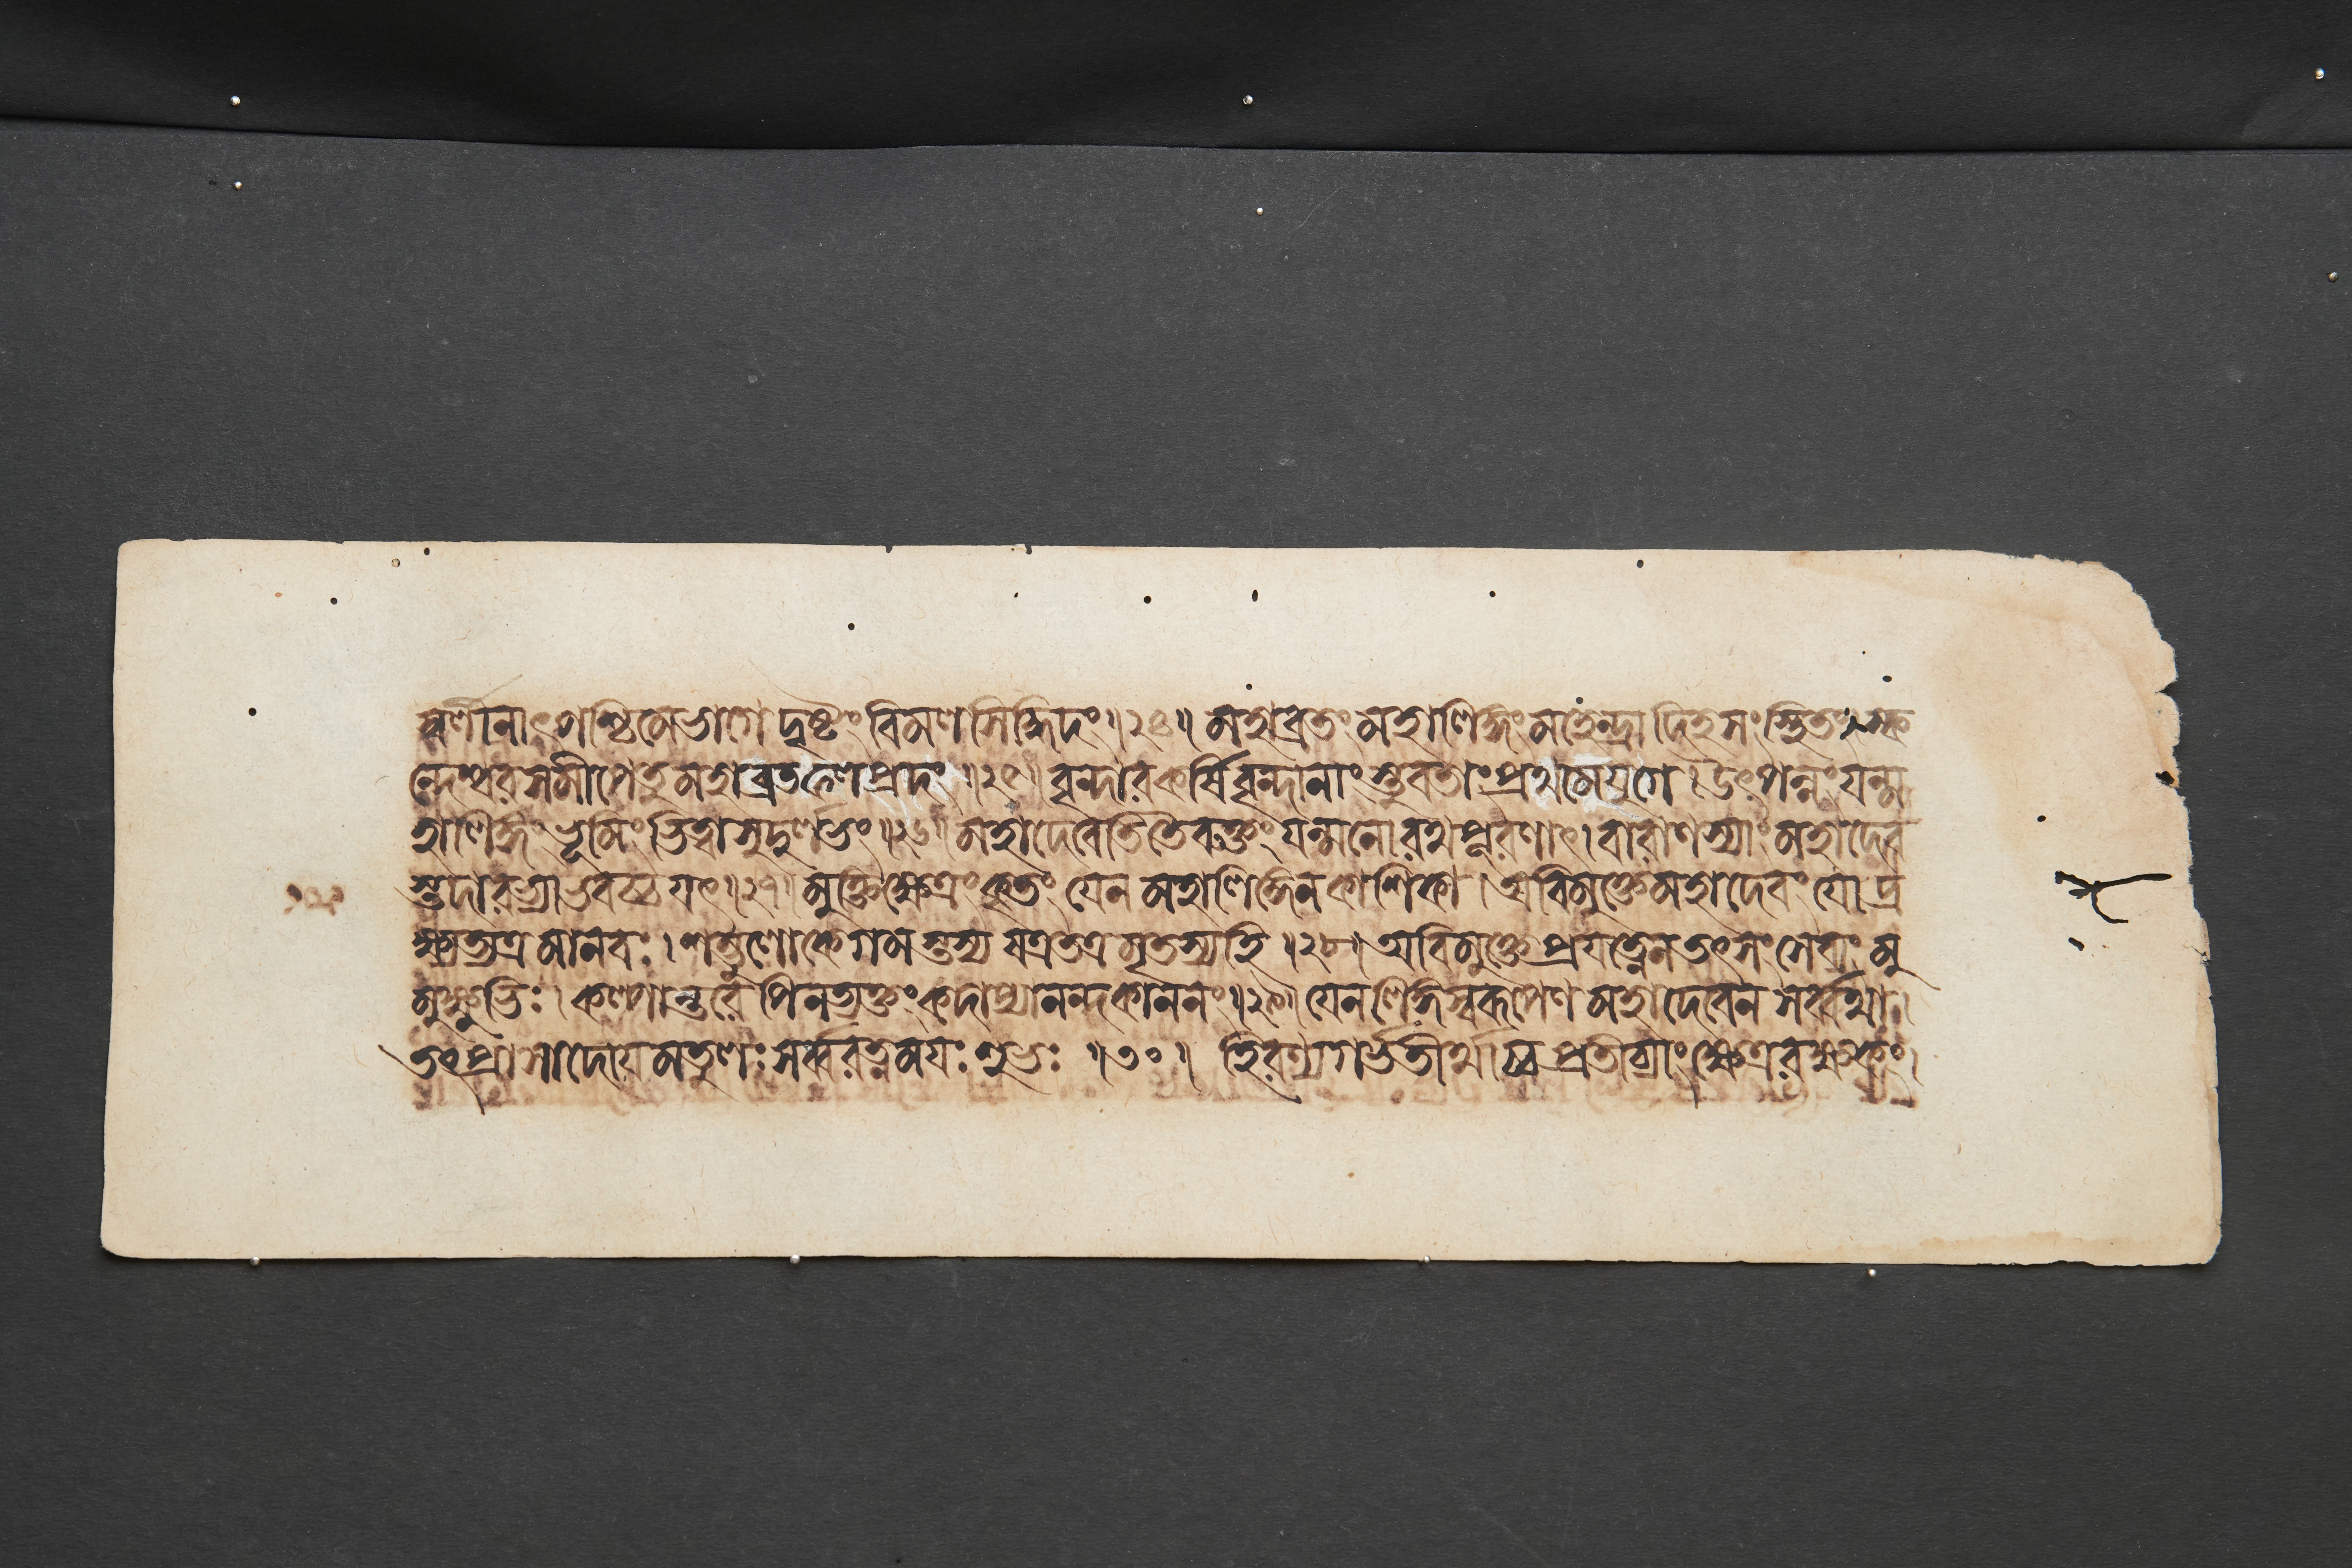 স্বর্লীনাৎপশ্চিমেভাগে দৃষ্টং বিমলসিদ্ধিদং॥২৪॥ মহাব্রতং মহালিঙ্গং মহেন্দ্রাদিহ সংস্থিতং। স্ক
ন্দেশ্বরসমীপেতু মহাব্রতফলপ্রদং॥২৫॥ বৃন্দারকর্ষিবৃন্দানাং স্তুবতাং প্রথমেযুগে। উৎপন্নং যন্ম
হালিঙ্গং ভূমিং ভিত্বা সুদুর্লভং॥২৬॥ মহাদেবেতি তৈরুক্তং যন্মনোরথপূরণাৎ। বারাণস্যাং মহাদেব
স্তদারভ্যাভবচ্চ যৎ॥২৭॥ মুক্তিক্ষেত্রং কৃতং যেন মহালিঙ্গেন কাশিকা। অবিমুক্তে মহাদেবং যো দ্র
ক্ষ্যত্যত্র মানবঃ। শম্ভুলোকে গমস্তস্য যত্রতত্র মৃতস্য হি॥২৮॥ অবিমুক্তে প্রযত্নেন তৎ সংসেব্যং মু
মুক্ষুভিঃ। কল্পান্তরেপি ন ত্যক্তং কদাপ্যানন্দকাননং॥২৯॥ যেন লিঙ্গস্বরূপেণ মহাদেবেন সর্ব্বথা।
তৎপ্রাসাদোযমতুলঃ সর্ব্বরত্নমযঃ শুভঃ॥৩০॥ হিরণ্যগর্ভতীর্থাচ্চ প্রতীচ্যাং ক্ষেত্ররক্ষকং।